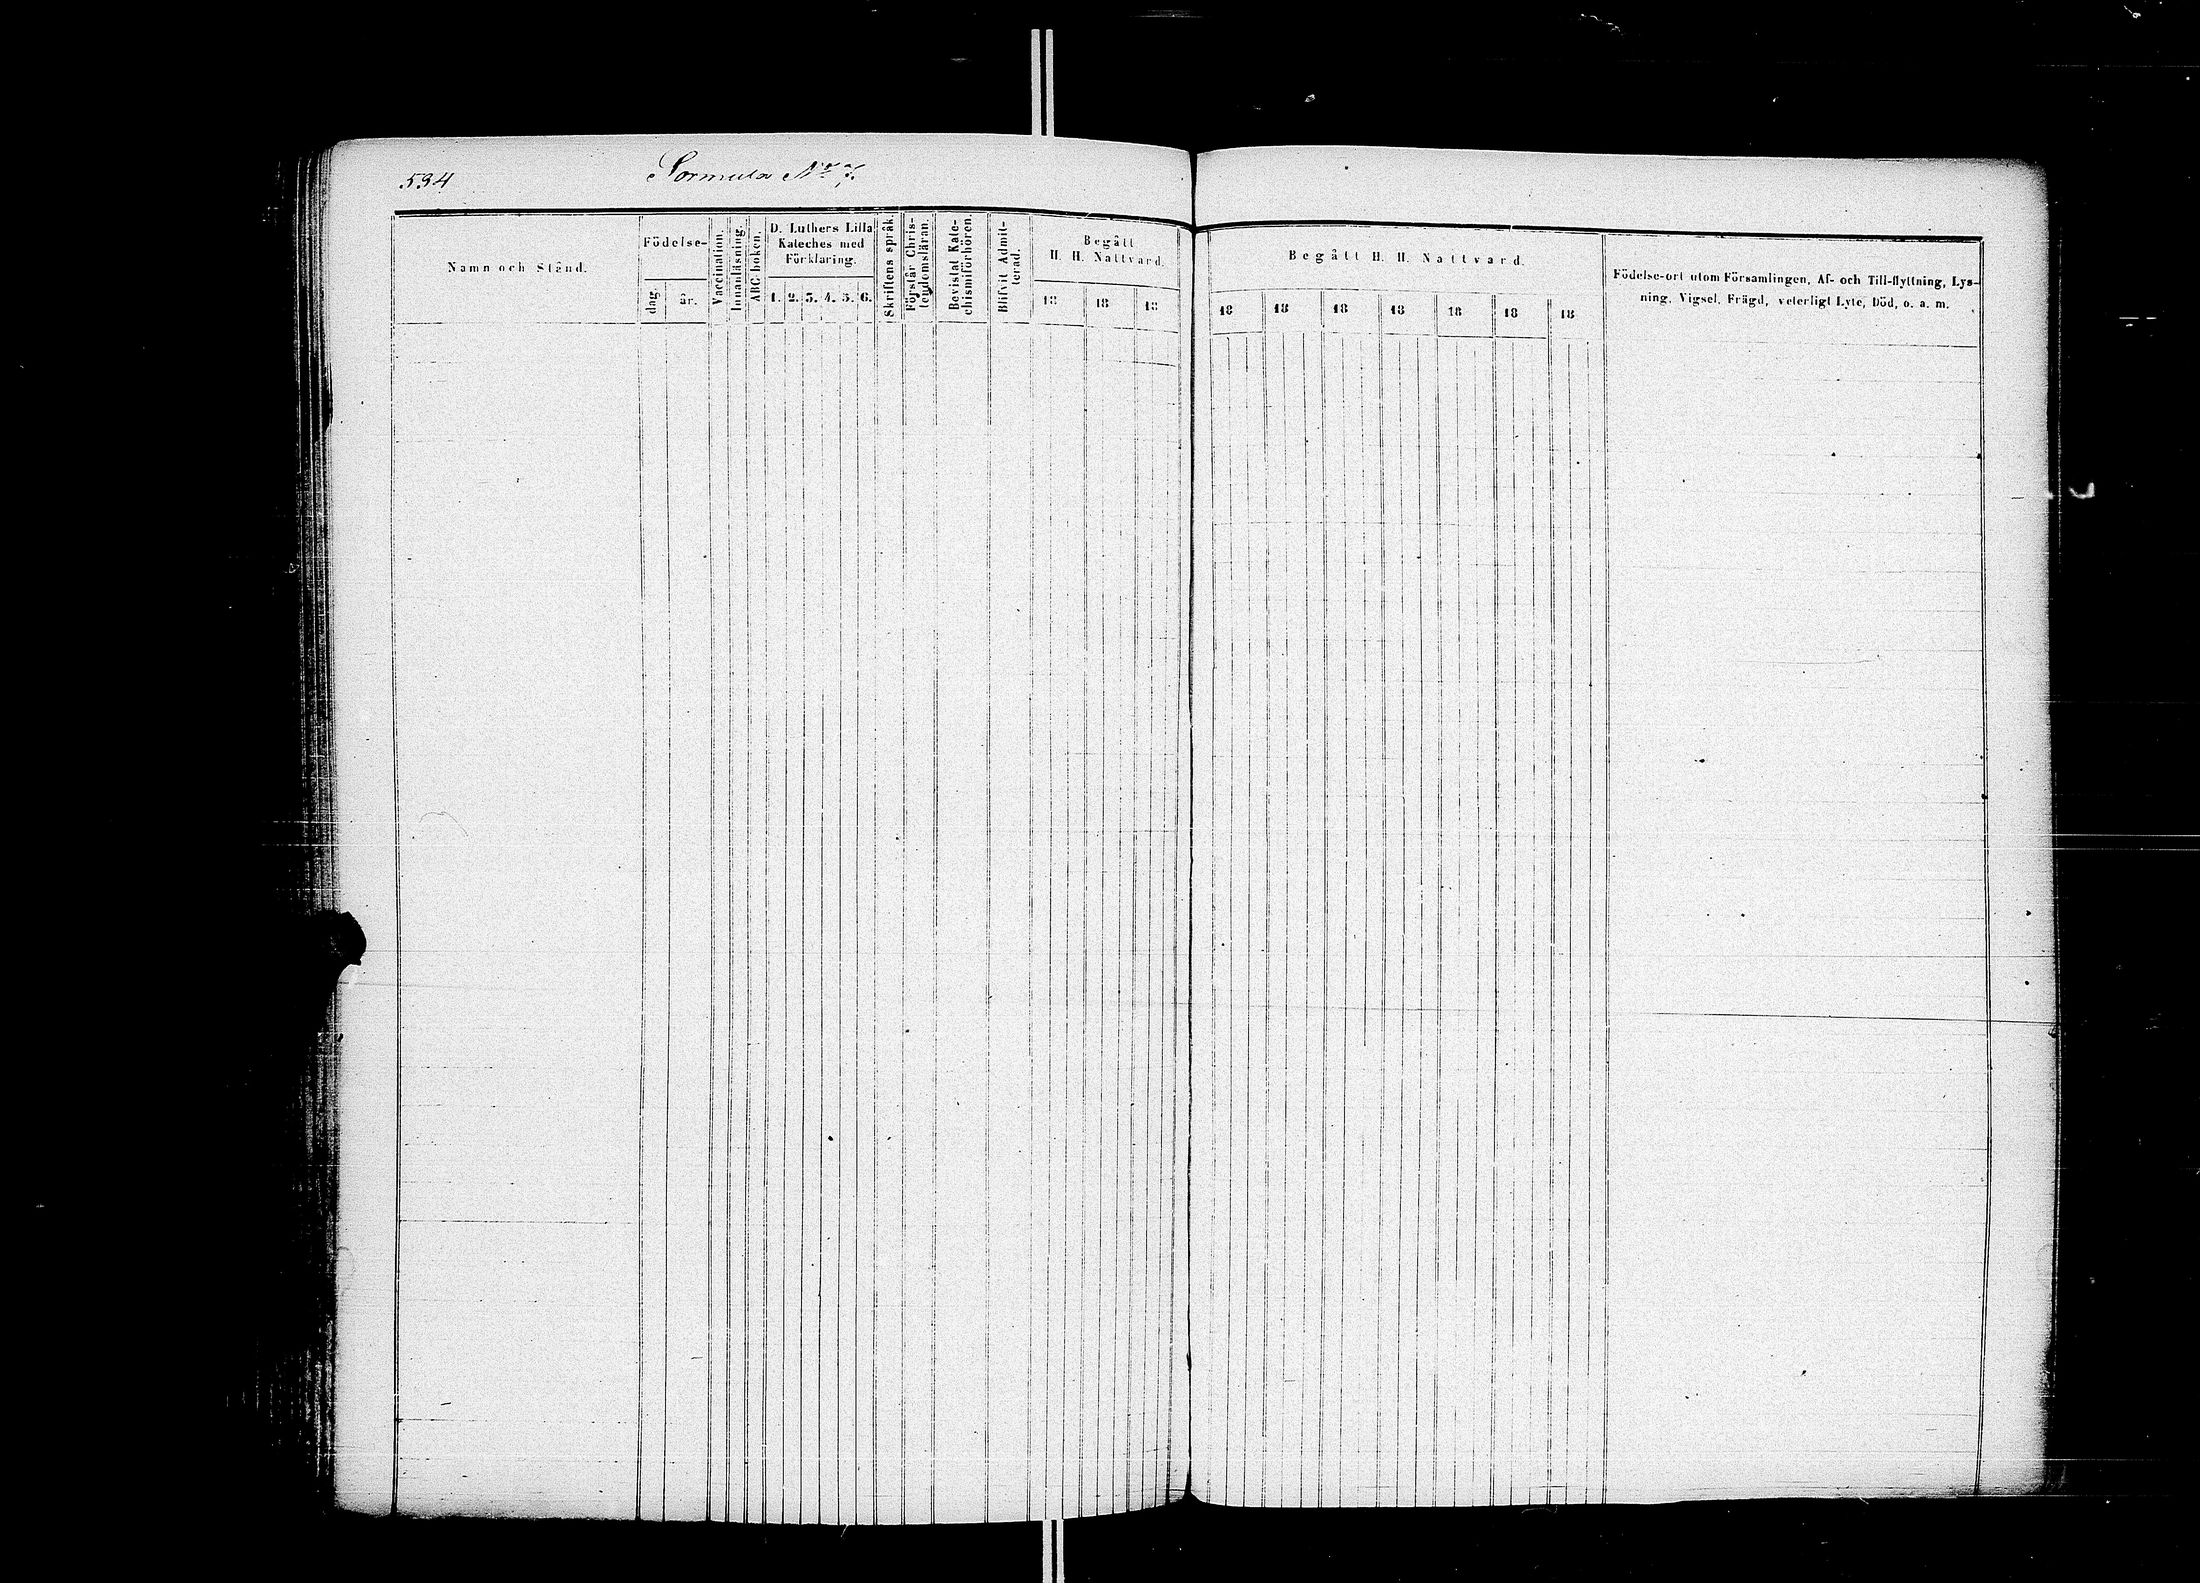 534
Sormula No 7.
Namn och Stånd.
Födelse-
dag.
år.
Vaccination.
Innanläsning.
ABC-boken.
D. Luthers Lilla
Kateches med
Förklaring.
1. 2. 3. 4. 5. 6.
Skriftens språk.
Förstår Chris-
tendomsläran.
Bevistat Kate-
chismiförhören.
Blifvit Admit-
terad.
Begått
H. H. Nattvard.
18 18 18
Begått H. H. Nattvard.
18 18 18 18 18 18 18
Födelse-ort utom Församlingen, Af- och Till-flyttning, Lys-
ning, Vigsel, Frägd, veterligt Lyte, Död, o. a. m.